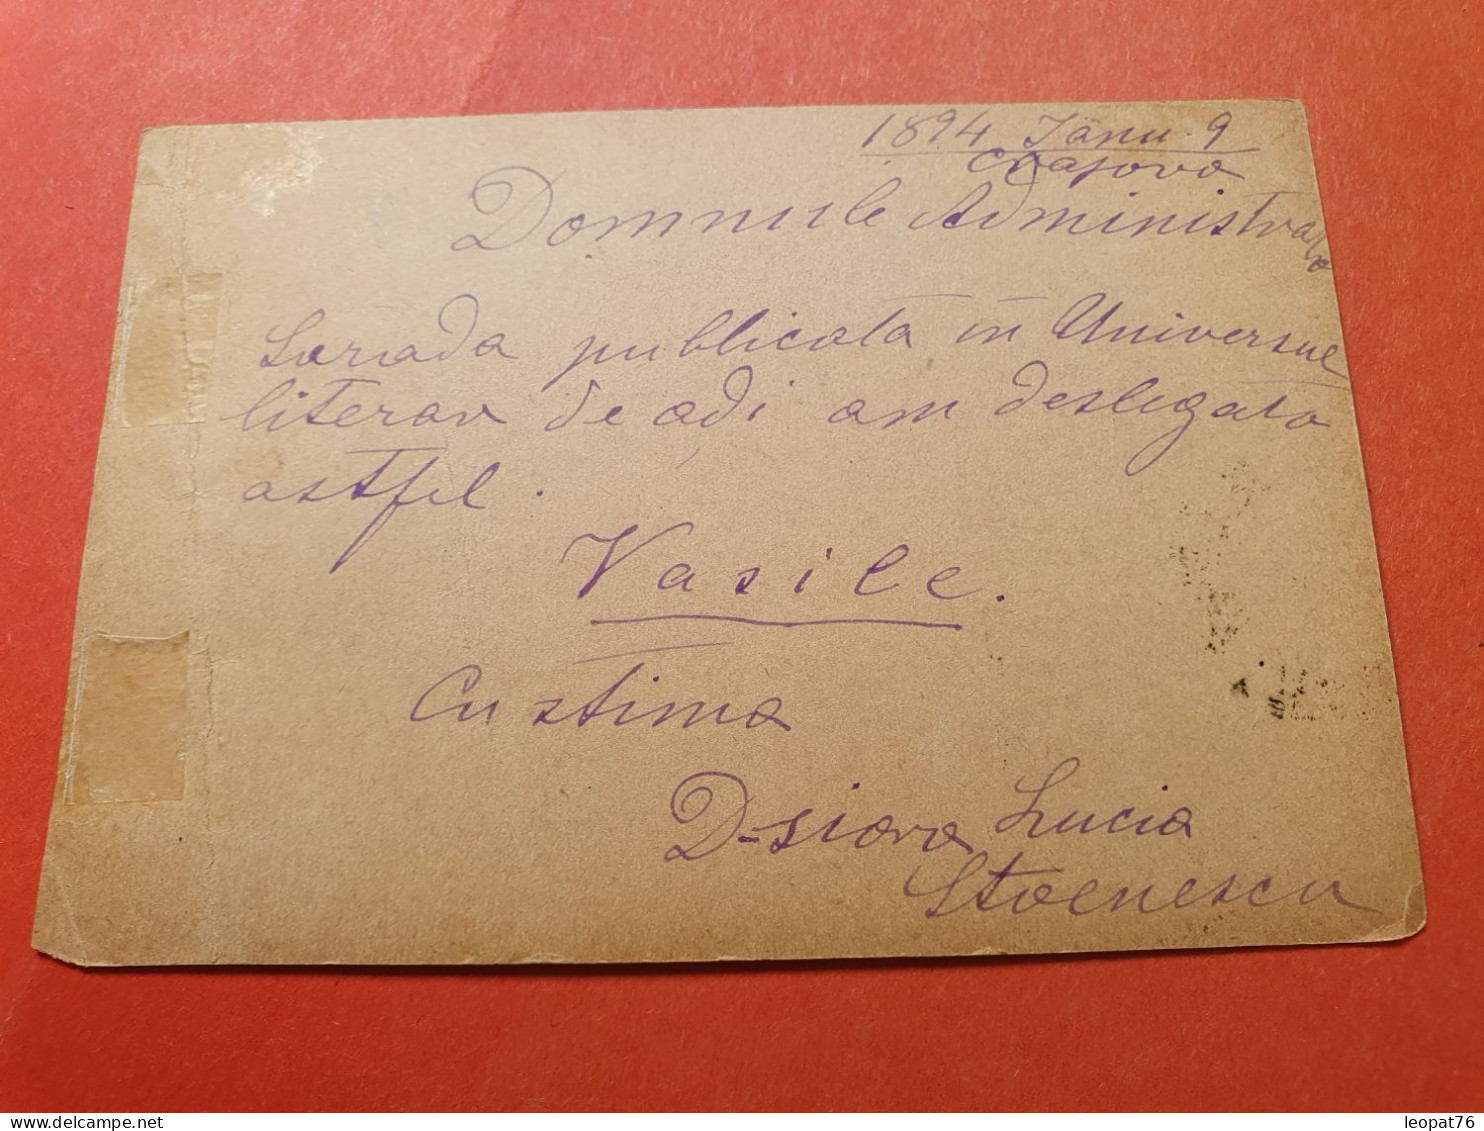 1894 Ianu. 9
Craiova
Domnule Administrator
Sarada publicata in Universul
literar de adi am deslegato
astfel.
Vasile.
Cu stima
D-sioara Lucia
Stoenescu
leopat76
delcampe.net